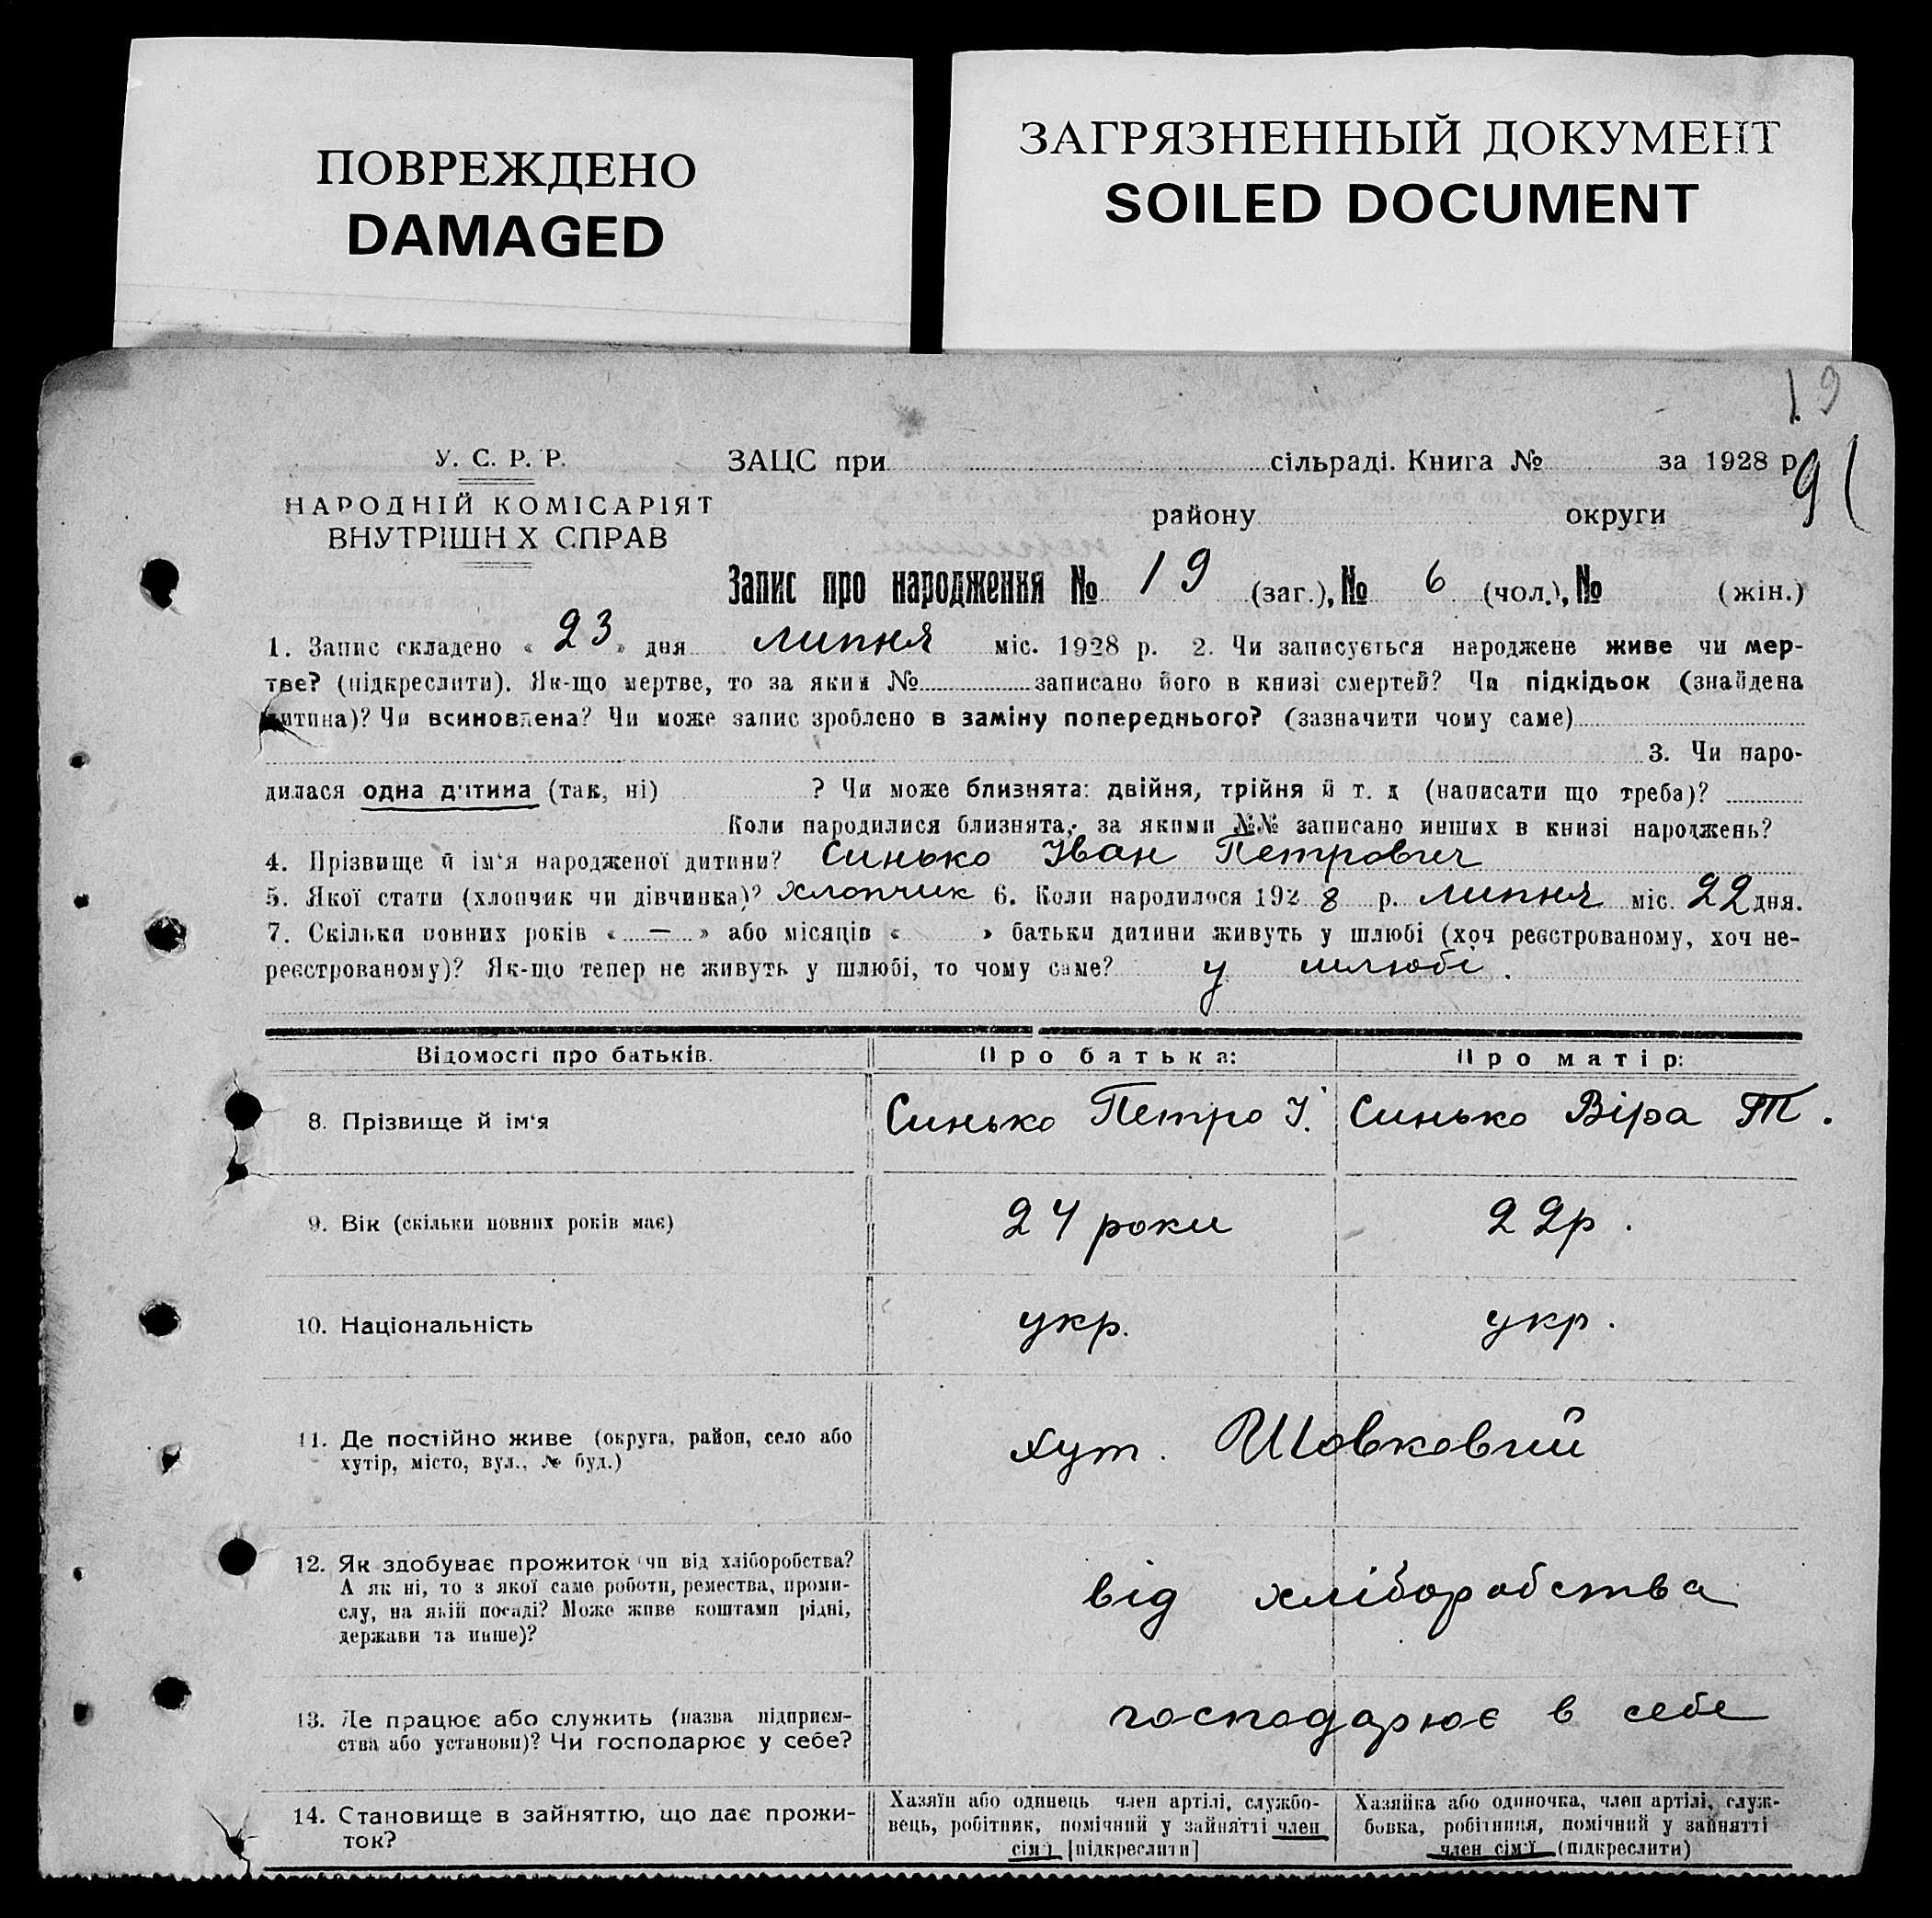 ПОВРЕЖДЕНО
DAMAGED
ЗАГРЯЗНЕННЫЙ ДОКУМЕНТ
SOILED DOCUMENT
19
91
У. С. Р. Р.
НАРОДНІЙ КОМІСАРІЯТ
ВНУТРІШН Х СПРАВ
ЗАЦС при сільраді. Книга № за 1928 р.
району округи
Запис про народження № 19 (заг.), № 6 (чол.), № (жін.)
1. Запис складено « 23 » дня липня міс. 1928 р. 2. Чи записується народжене живе чи мер-
тве? (підкреслити). Як-що мертве, то за яким № записано його в книзі смертей? Чи підкідьок (знайдена
дитина)? Чи всиновлена? Чи може запис зроблено в заміну попереднього? (зазначити чому саме)
3. Чи наро-
дилася одна дитина (так, ні) ? Чи може близнята: двійня, трійня й т. д (написати що треба)?
Коли народилися близнята, за якими №№ записано инших в книзі народжень?
4. Прізвище й ім'я народженої дитини? Синько Іван Петрович
5. Якої стати (хлопчик чи дівчинка)? хлопчик 6. Коли народилося 1928 р. липня міс. 22 дня.
7. Скільки повних років « — » або місяців « » батьки дитини живуть у шлюбі (хоч реєстрованому, хоч не-
реєстрованому)? Як-що тепер не живуть у шлюбі, то чому саме? у шлюбі.
Відомості про батьків. Про батька: Про матір:
8. Прізвище й ім'я Синько Петро І. Синько Віра Т.
9. Вік (скільки повних років має) 24 роки 22 р.
10. Національність укр. укр.
11. Де постійно живе (округа, район, село або
хутір, місто, вул., № буд.) хут. Шовковий
12. Як здобуває прожиток чи від хліборобства?
А як ні, то з якої саме роботи, ремества, проми-
слу, на якій посаді? Може живе коштами рідні,
держави та инше)? від хліборобства
13. Де працює або служить (назва підприєм-
ства або установи)? Чи господарює у себе? господарює в себе
14. Становище в зайняттю, що дає прожи-
ток?
Хазяїн або одинець член артілі, службо-
вець, робітник, помічний у зайнятті член
сім'ї [підкреслити]
Хазяйка або одиночка, член артілі, служ-
бовка, робітниця, помічний у зайнятті
член сім'ї (підкреслити)